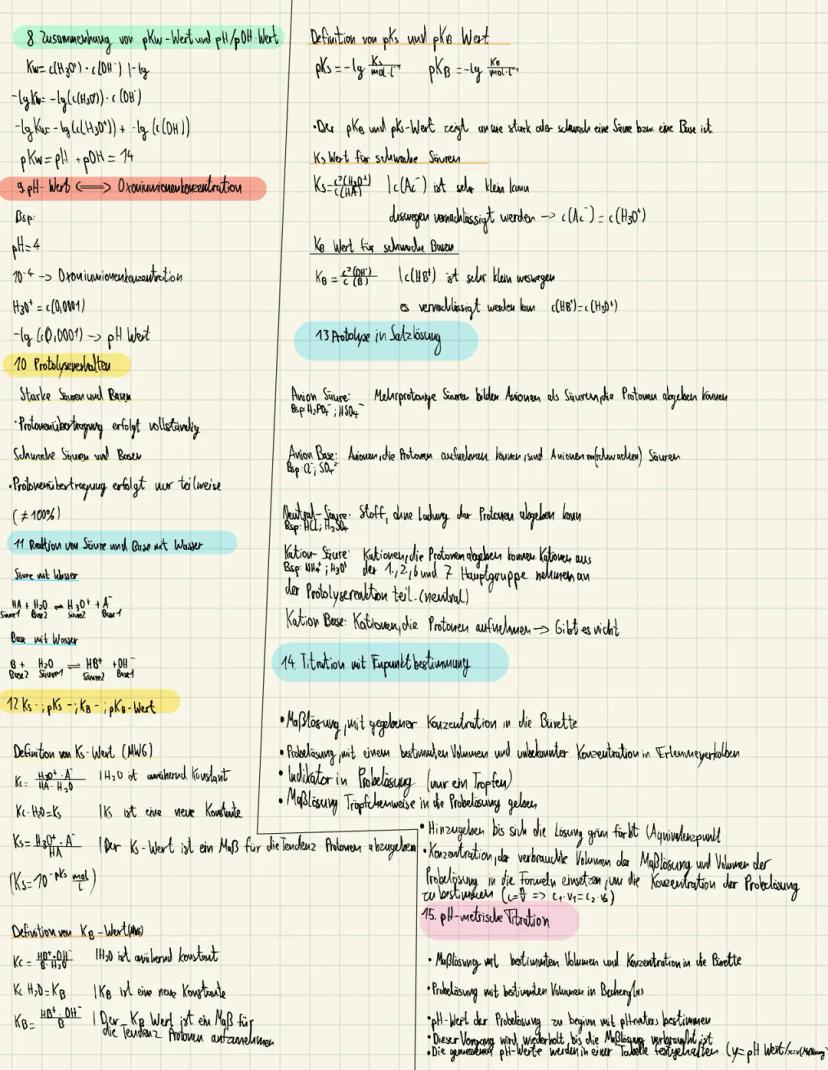 8. Zusammenhang von pKw-Wert und pH/pOH-Wert
Kw= c(H₃O⁺) · c(OH⁻) |-lg
-lgKw= -lg(c(H₃O⁺)) · c(OH⁻)
-lgKw= -lg(c(H₃O⁺)) + -lg(c(OH⁻))
pKw= pH + pOH = 14
9. pH-Wert <=> Oxoniumionenkonzentration
Bsp:
pH=4
10⁻⁴ -> Oxoniumionenkonzentration
H₃O⁺ = c(0,0001)
-lg (c0,0001) -> pH Wert
10 Protolyseverhalten
Starke Säuren und Basen
·Protonenübertragung erfolgt vollständig
Schwache Säuren und Basen
·Protonenübertragung erfolgt nur teilweise
(≠100%)
11 Reaktion von Säure und Base mit Wasser
Säure mit Wasser
HA + H₂O ⇌ H₃O⁺ + A⁻
Säure1 Base2 Säure2 Base1
Base mit Wasser
B + H₂O ⇌ HB⁺ + OH⁻
Base2 Säure1 Säure2 Base1
12 Ks-; pKs-; KB-; pKB-Wert
Definition von Ks-Wert (MWG)
Kc= H₃O⁺·A⁻ / HA·H₂O |H₂O ist annähernd Konstant
Kc·H₂O=Ks |Ks ist eine neue Konstante
Ks= H₃O⁺·A⁻ / HA |Der Ks-Wert ist ein Maß für die Tendenz Protonen abzugeben
(Ks=10^-pKs mol/L)
Definition von KB-Wert(MWG)
Kc= HB⁺·OH⁻ / B·H₂O |H₂O ist annähernd konstant
Kc·H₂O=KB |KB ist eine neue Konstante
KB= HB⁺·OH⁻ / B |Der KB Wert ist ein Maß für
die Tendenz Protonen anzunehmen
Definition von pKs und pKB Wert
pKs=-lg Ks / mol·L⁻¹ pKB=-lg KB / mol·L⁻¹
·Der pKB und pKs-Wert zeigt an wie stark oder schwach eine Säure bzw. eine Base ist
Ks Wert für schwache Säuren
Ks= c²(H₃O⁺) / c(HA) |c(Ac⁻) ist sehr klein kann
deswegen vernachlässigt werden -> c(Ac⁻)=c(H₃O⁺)
KB Wert für schwache Basen
KB= c²(OH⁻) / c(B) |c(HB⁺) ist sehr klein weswegen
es vernachlässigt werden kann c(HB⁺)=c(H₃O⁺)
13 Protolyse in Salzlösung
Anion Säure: Mehrprotonige Säuren bilden Anionen als Säuren, die Protonen abgeben können
Bsp: H₂PO₄⁻; HSO₄⁻
Anion Base: Anionen, die Protonen aufnehmen können, sind Anionen (schwachen) Säuren
Bsp: Cl⁻; SO₄²⁻
Neutral-Säure: Stoff, ohne Ladung der Protonen abgeben kann
Bsp: HCl; H₂SO₄
Kation-Säure: Kationen, die Protonen abgeben können Kationen aus
Bsp: NH₄⁺; H₃O⁺ der 1., 2, 6 und 7 Hauptgruppe nehmen an
der Protolysereaktion teil. (neutral)
Kation Base: Kationen, die Protonen aufnehmen -> Gibt es nicht
14. Titration mit Enpunktbestimmung
·Maßlösung, mit gegebener Konzentration in die Bürette
·Probelösung, mit einem bestimmten Volumen und unbekannter Konzentration in Erlenmeyerkolben
·Indikator in Probelösung (nur ein Tropfen)
·Maßlösung Tröpfchenweise in die Probelösung geben
·Hinzugeben bis sich die Lösung grün färbt (Äquivalenzpunkt
·Konzentration, der verbrauchte Volumen der Maßlösung und Volumen der
Probelösung in die Formeln einsetzen, um die Konzentration der Probelösung
zu bestimmen (c=n/V => c₁·V₁=c₂·V₂)
15. pH-metrische Titration
·Maßlösung mit bestimmten Volumen und Konzentration in die Bürette
·Probelösung mit bestimmten Volumen in Becherglas
·pH-Wert der Probelösung zu beginn mit pH-meter bestimmen
·Dieser Vorgang wird wiederholt, bis die Maßlösung verbraucht ist
·Die gemessenen pH-Werte werden in einer Tabelle festgehalten (y=pH Wert/x=V(Maßlösung)